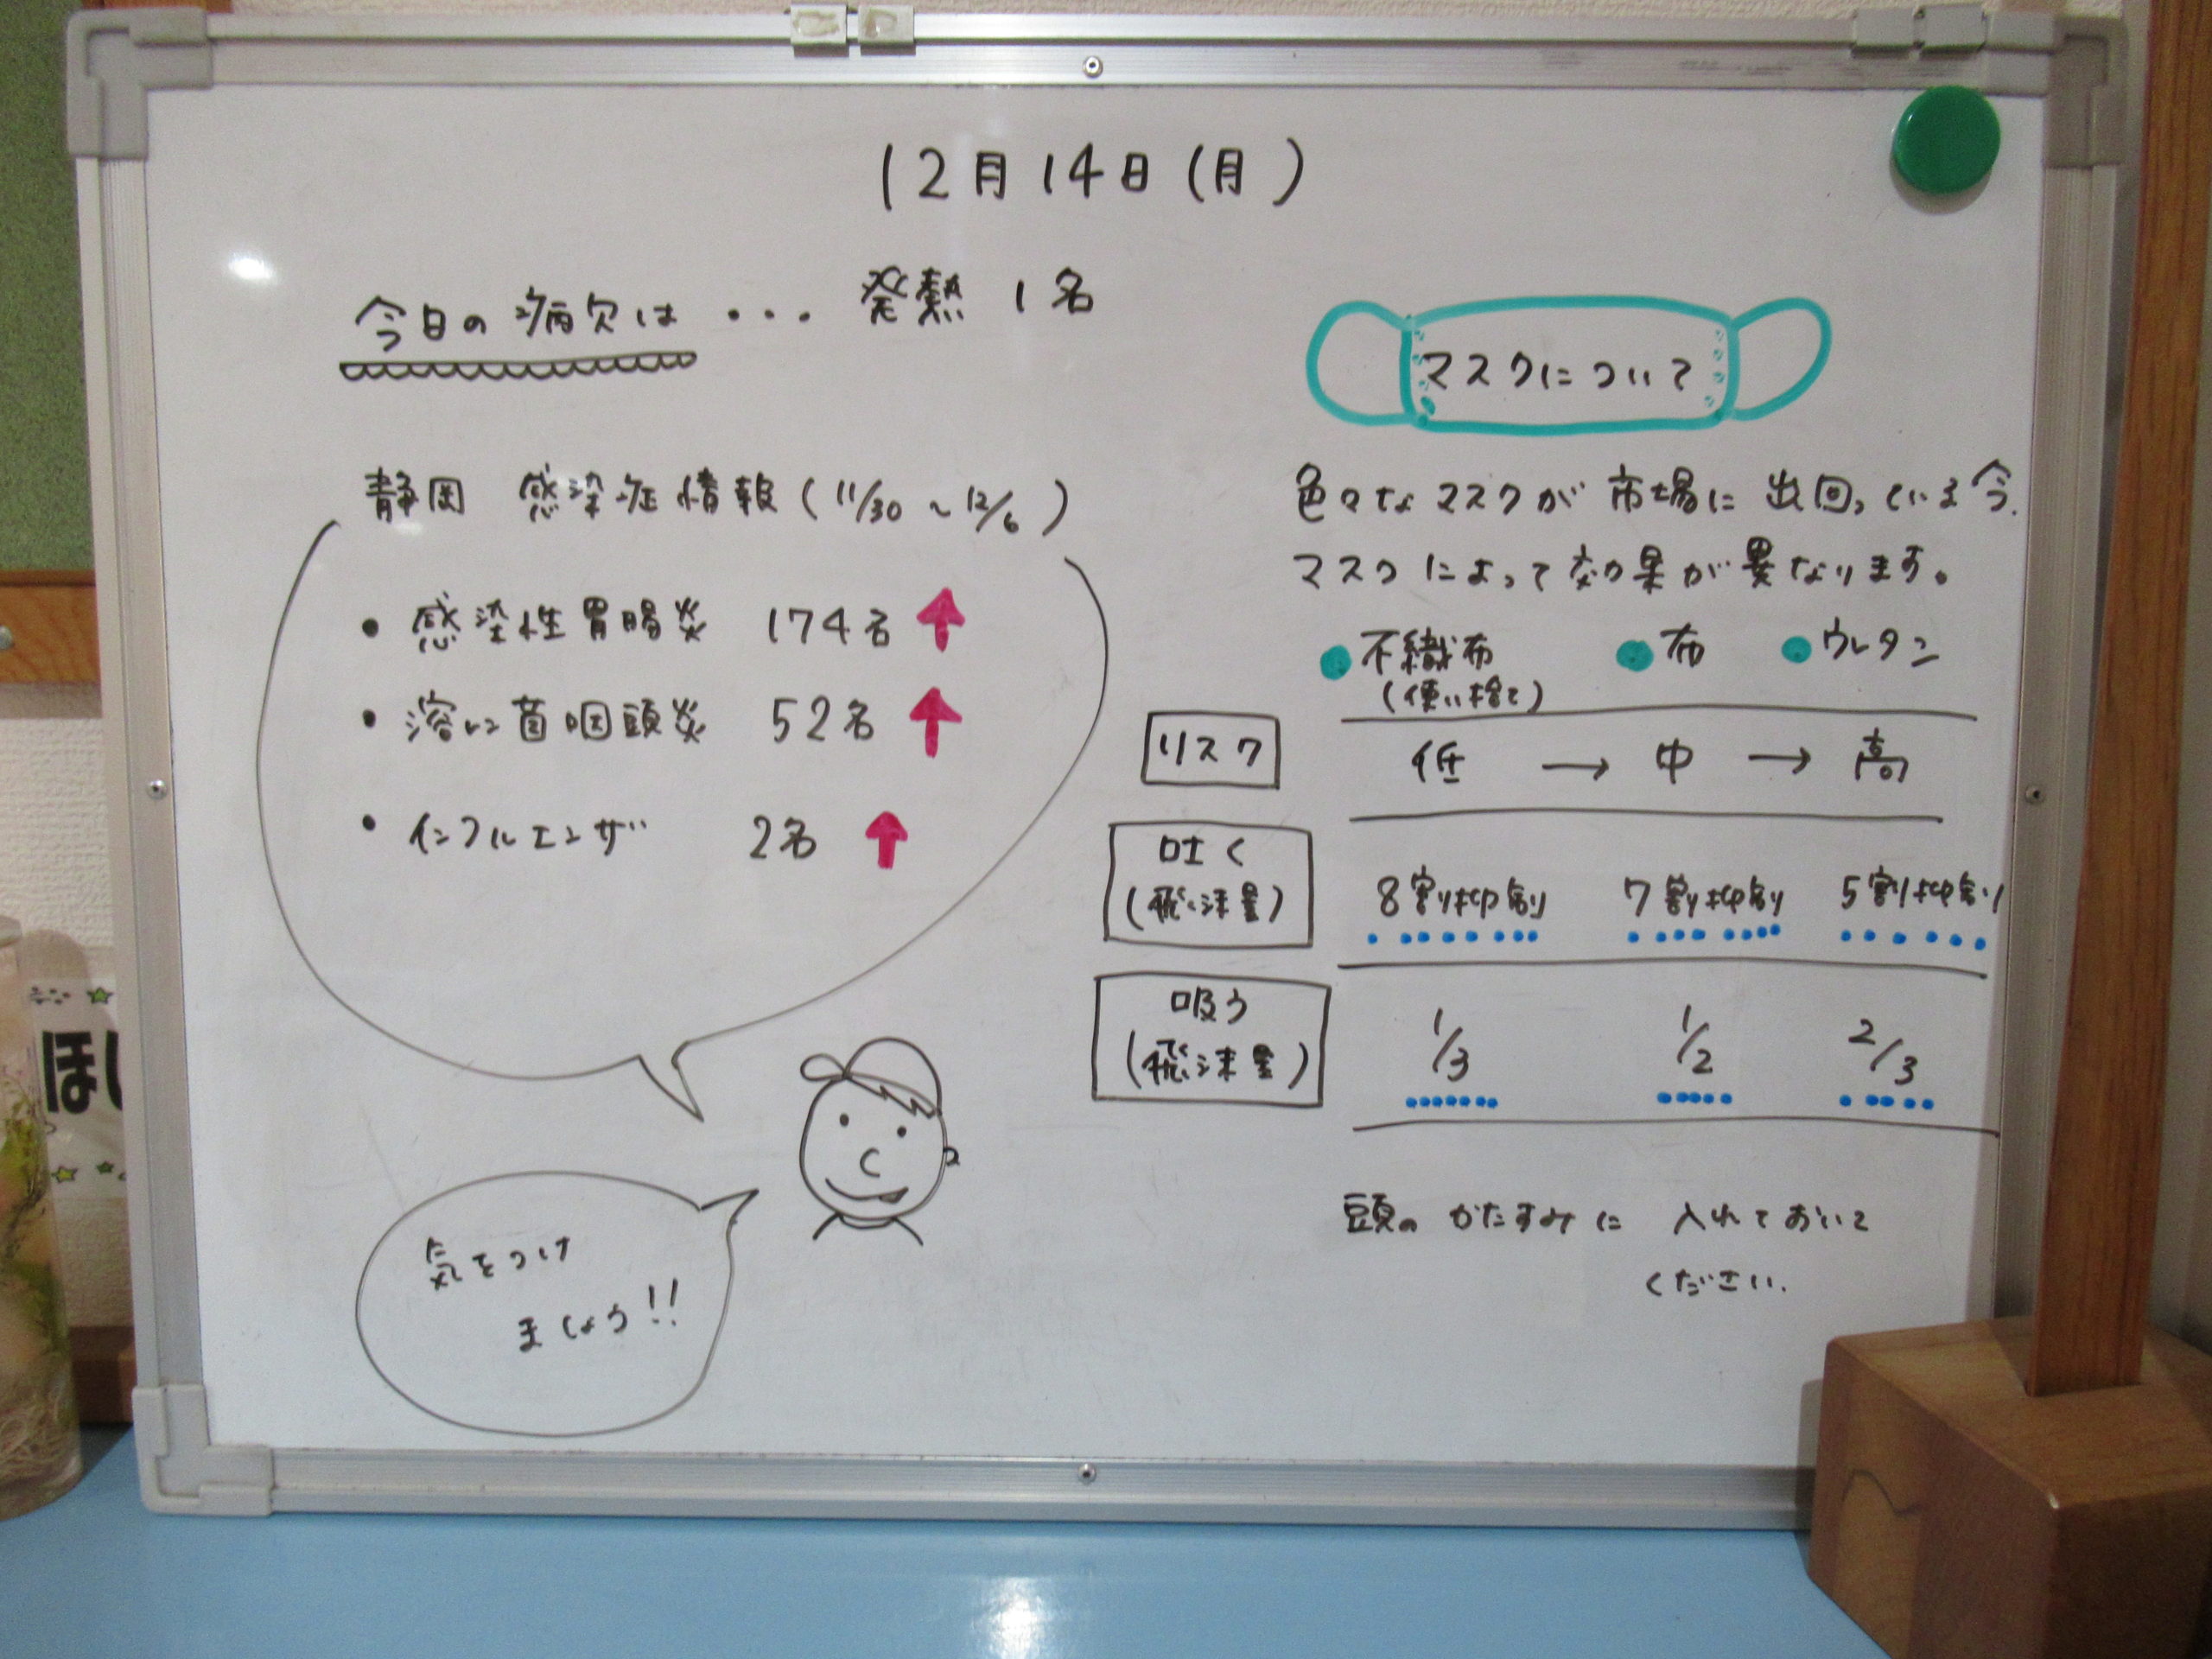 12月14日(月)
今日の病欠は・・・ 発熱 1名
静岡 感染症情報(11/30~12/6)
・感染性胃腸炎 174名 ↑
・溶レン菌咽頭炎 52名 ↑
・インフルエンザ 2名 ↑
気をつけ
ましょう!!
マスクについて
色々なマスクが市場に出回っている今、
マスクによって効果が異なります。
●不織布 ●布 ●ウレタン
(使い捨て)
リスク 低 → 中 → 高
吐く
(飛沫量) 8割抑制 7割抑制 5割抑制
吸う
(飛沫量) 1/3 1/2 2/3
頭のかたすみに 入れておいて
ください.
ほし